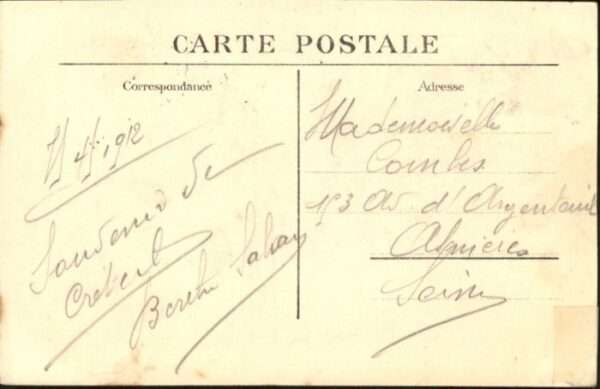 CARTE POSTALE
Correspondance
4/1912
Souvenir de
Adresse
Mademoiselle
Combes
153 Av. d'Argenteuil
Asnières
Seine